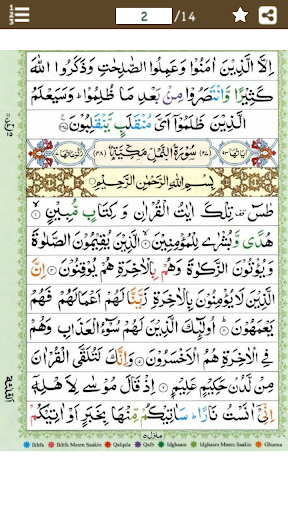 2 /14
اِلَّا الَّذِيۡنَ اٰمَنُوۡا وَعَمِلُوا الصّٰلِحٰتِ وَذَكَرُوا اللّٰهَ
كَثِيۡرًا وَّانْتَصَرُوۡا مِنۡۢ بَعۡدِ مَا ظُلِمُوۡا ؕ وَسَيَعۡلَمُ
الَّذِيۡنَ ظَلَمُوۡۤا اَىَّ مُنۡقَلَبٍ يَّنۡقَلِبُوۡنَ
سُوۡرَةُ النَّمۡلِ مَكِّيَّةٌ
بِسۡمِ اللّٰهِ الرَّحۡمٰنِ الرَّحِيۡمِ
طٰسٓ ۚ تِلۡكَ اٰيٰتُ الۡقُرۡاٰنِ وَ كِتَابٍ مُّبِيۡنٍ ۙ
هُدًى وَّبُشۡرٰى لِلۡمُؤۡمِنِيۡنَ ۙ الَّذِيۡنَ يُقِيۡمُوۡنَ الصَّلٰوةَ
وَ يُؤۡتُوۡنَ الزَّكٰوةَ وَ هُمۡ بِالۡاٰخِرَةِ هُمۡ يُوۡقِنُوۡنَ اِنَّ
الَّذِيۡنَ لَا يُؤۡمِنُوۡنَ بِالۡاٰخِرَةِ زَيَّنَّا لَهُمۡ اَعۡمَالَهُمۡ فَهُمۡ
يَعۡمَهُوۡنَ ؕ اُولٰٓٮِٕكَ الَّذِيۡنَ لَهُمۡ سُوۡٓءُ الۡعَذَابِ وَهُمۡ
فِى الۡاٰخِرَةِ هُمُ الۡاَخۡسَرُوۡنَ وَاِنَّكَ لَتُلَقَّى الۡقُرۡاٰنَ
مِنۡ لَّدُنۡ حَكِيۡمٍ عَلِيۡمٍ اِذۡ قَالَ مُوۡسٰى لِاَهۡلِهٖۤ
اِنِّىۡۤ اٰنَسۡتُ نَارًا ؕ سَاٰتِيۡكُمۡ مِّنۡهَا بِخَبَرٍ اَوۡ اٰتِيۡكُمۡ
منزل ۵
Ikhfa Ikhfa Meem Saakin Qalqala Qalb Idghaam Idghaam Meem Saakin Ghunna